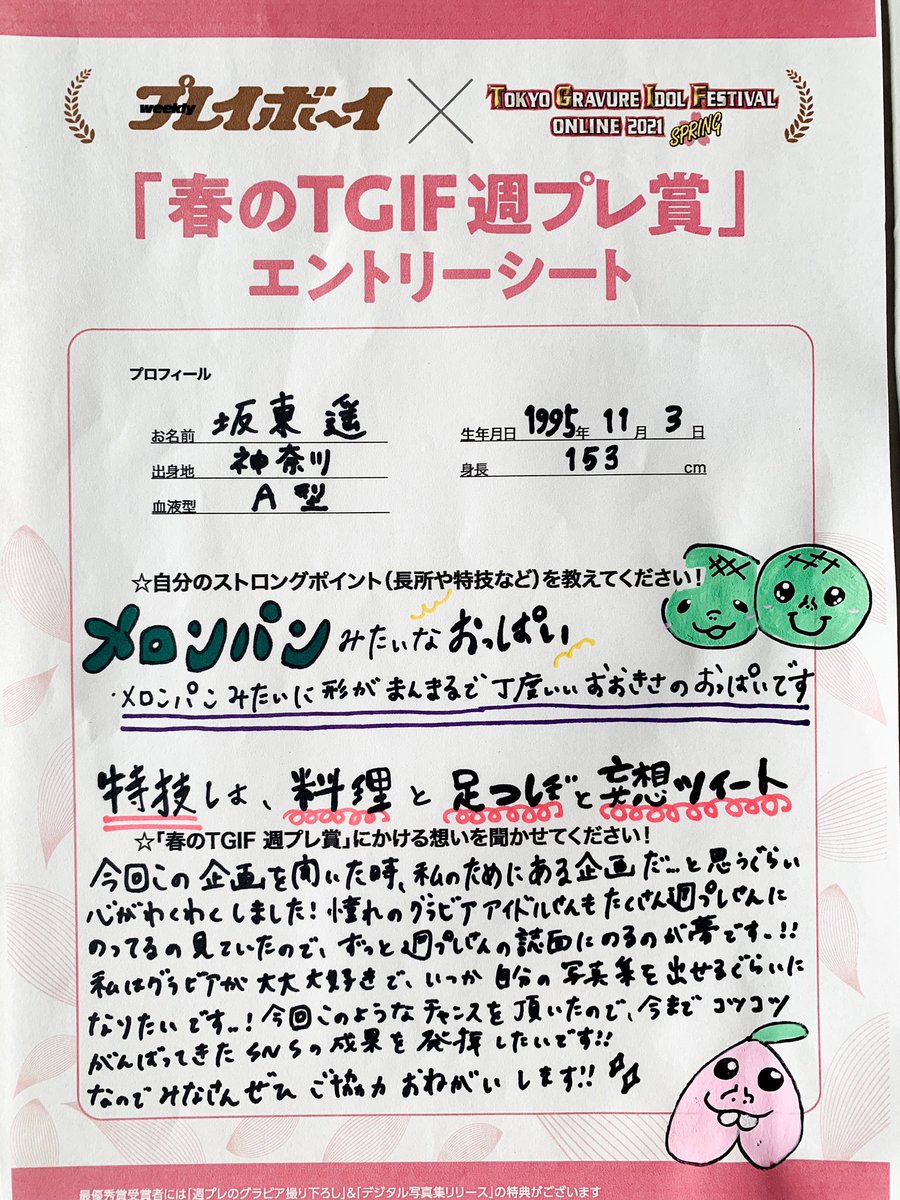 weekly プレイボーイ × TOKYO GRAVURE IDOL FESTIVAL
ONLINE 2021 SPRING
「春のTGIF 週プレ賞」
エントリーシート
プロフィール
お名前 坂東 遥
生年月日 1995年 11月 3日
出身地 神奈川
身長 153 cm
血液型 A型
☆自分のストロングポイント(長所や特技など)を教えてください!
メロンパンみたいなおっぱい
メロンパンみたいに形がまんまるで丁度いいおおきさのおっぱいです
特技は、料理と足つぼと妄想ツイート
☆「春のTGIF 週プレ賞」にかける想いを聞かせてください!
今回この企画を聞いた時、私のためにある企画だ…と思うぐらい
心がわくわくしました!憧れのグラビアアイドルさんもたくさん週プレさんに
のってるの見ていたので、ずっと週プレさんの誌面にのるのが夢です..!!
私はグラビアが大大大好きで、いつか自分の写真集を出せるぐらいに
なりたいです..!今回このようなチャンスを頂いたので、今までコツコツ
がんばってきたSNSの成果を発揮したいです!!
なのでみなさんぜひご協力おねがいします!!
最優秀賞受賞者には「週プレのグラビア撮り下ろし」&「デジタル写真集リリース」の特典がございます